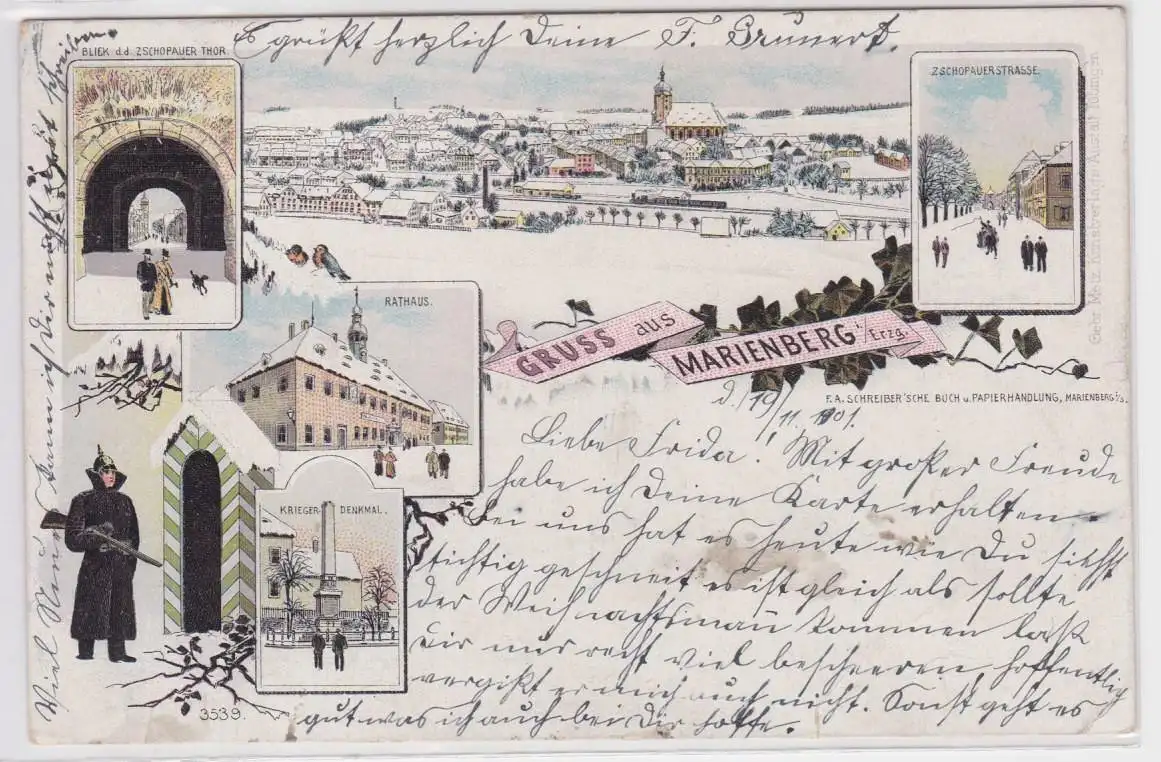 Es grüßt herzlich Deine F. Brunert.
BLICK d.d. ZSCHOPAUER THOR
ZSCHOPAUERSTRASSE.
RATHAUS.
GRUSS aus
MARIENBERG i/Erzg.
F.A. SCHREIBER'SCHE BUCH u. PAPIERHANDLUNG, MARIENBERG i/S.
KRIEGER-DENKMAL.
3539.
d. 19/11. 1901.
Liebe Frida! Mit großer Freude
habe ich Deine Karte erhalten
bei uns hat es heute wie Du siehst
tichtig geschneit es ist gleich als sollte
der Weihnachtsmañ kommen laß
Dir nur recht viel bescheeren, hoffentlich
vergißt er mich auch nicht. Sonst geht es
gut was ich auch bei Dir hoffe.
Viel kann ich Dir nicht schreiben.